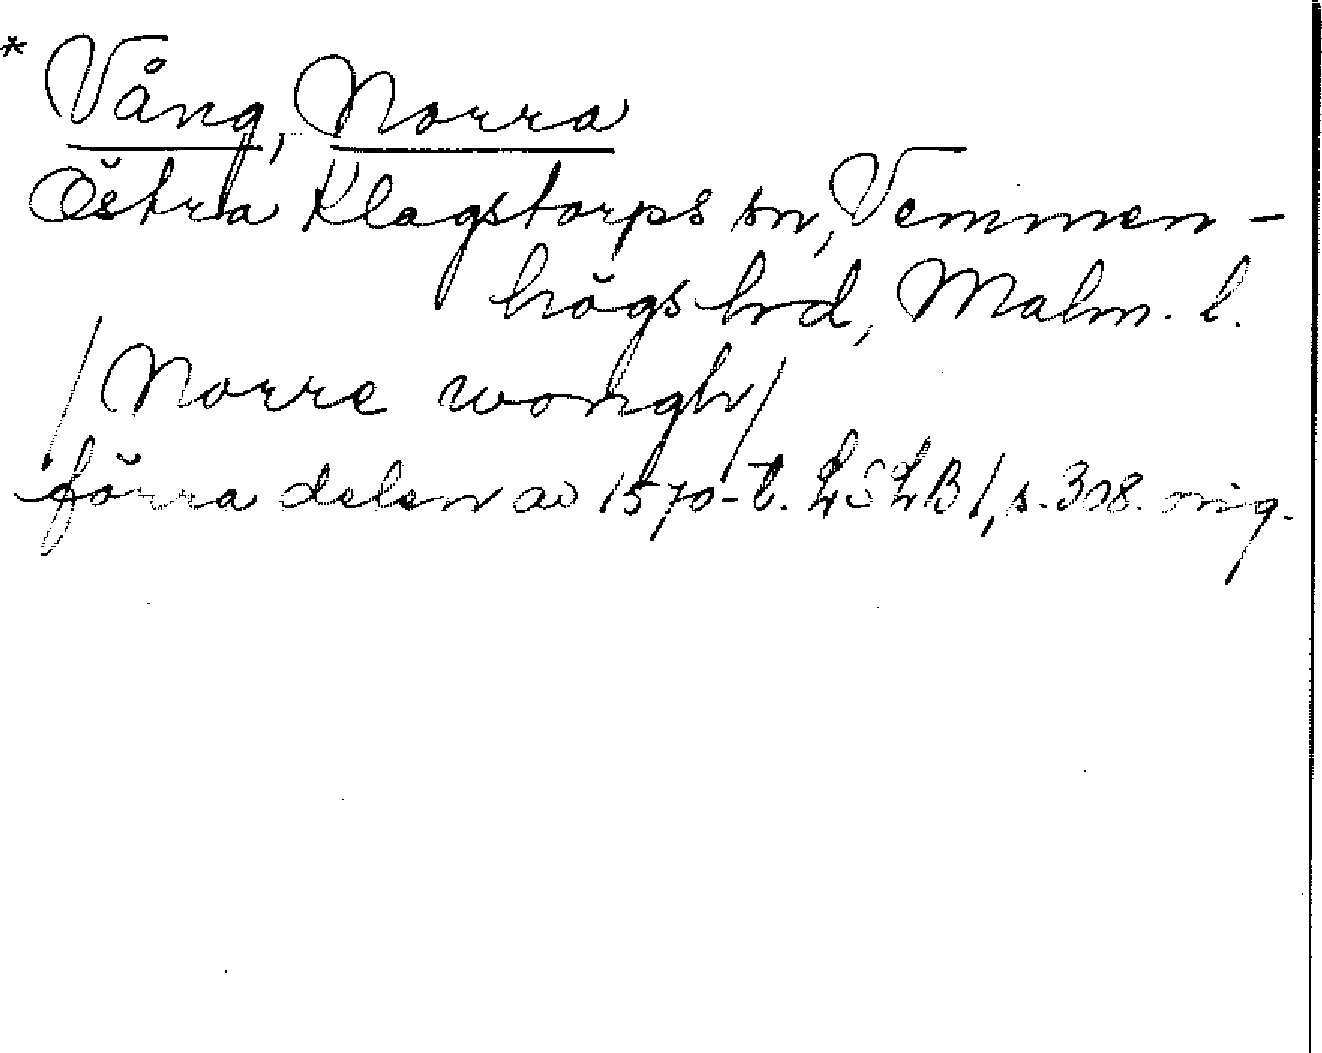 * Vång, Norra
Östra Klagstorps sn, Vemmen-
högs hd, Malm. l.
/Norre wongh/
förra delen av 1570-t. LSLB 1, s. 308. orig.